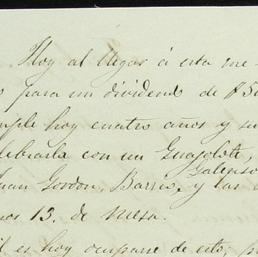 Hoy al llegar á esta me
para un dividendo de $50
mple hoy cuatro años y su
lebrarla con un Guajolote,
Galenso
uan Gordon, Barris, y las
os 13. de mesa.
il es hoy ocuparse de esto, p